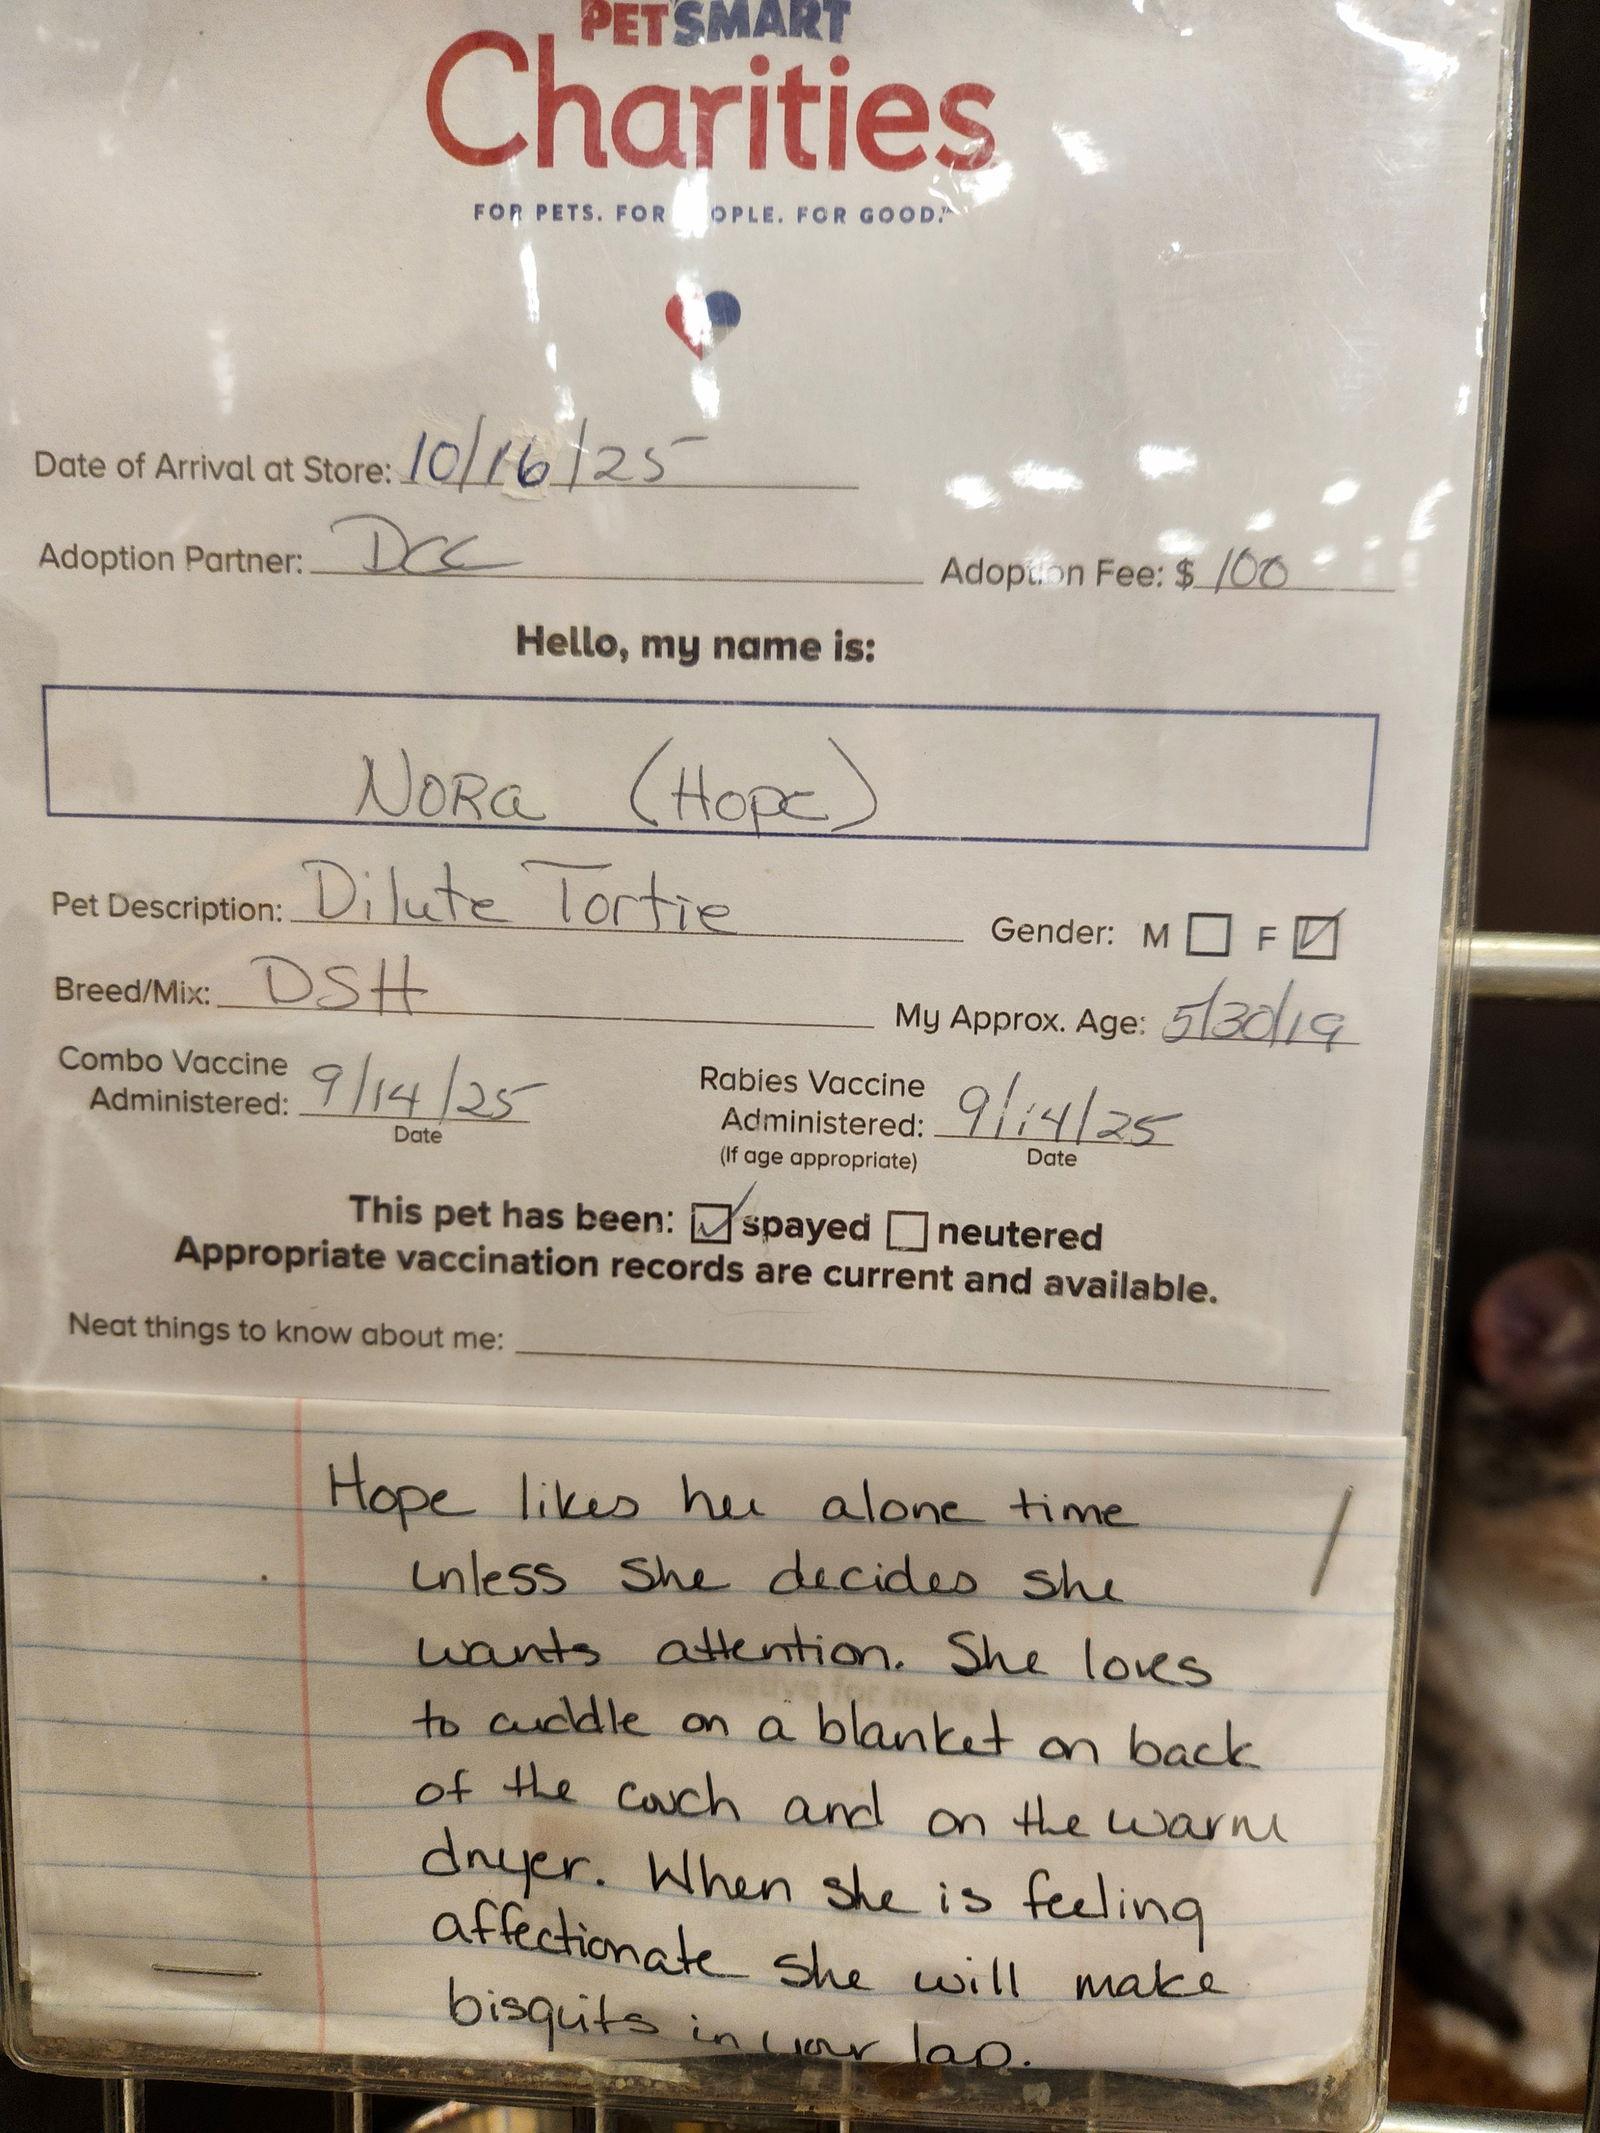 PETSMART
Charities
FOR PETS. FOR PEOPLE. FOR GOOD.™
Date of Arrival at Store: 10/16/25
Adoption Partner: DCC Adoption Fee: $ 100
Hello, my name is:
NORa (Hope)
Pet Description: Dilute Tortie Gender: M F
Breed/Mix: DSH My Approx. Age: 5/30/19
Combo Vaccine Administered: 9/14/25 Date
Rabies Vaccine Administered: (If age appropriate) 9/14/25 Date
This pet has been: spayed neutered
Appropriate vaccination records are current and available.
Neat things to know about me:
Hope likes her alone time
unless she decides she
wants attention. She loves
to cuddle on a blanket on back
of the couch and on the warm
dryer. When she is feeling
affectionate she will make
bisquits in your lap.